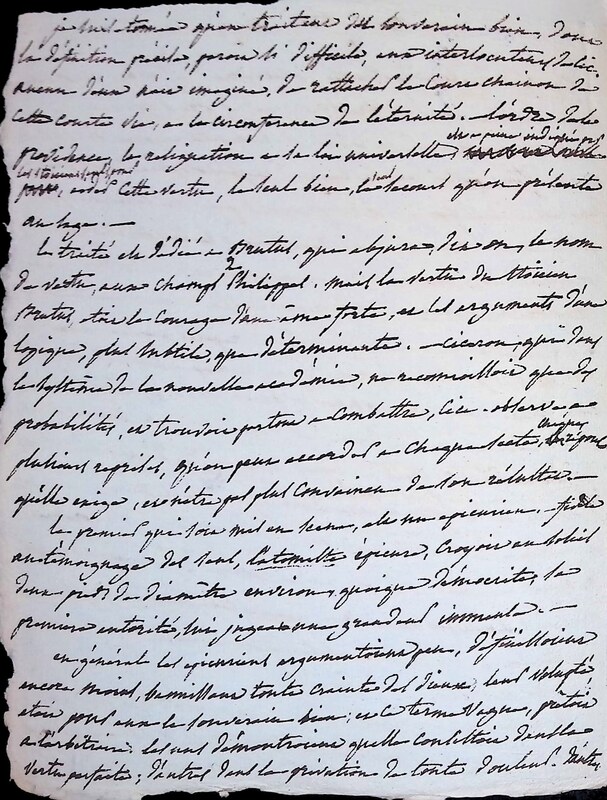 je suis étonné qu'en traitant du souverain bien, dont
la définition précise, paroit si difficile, aux interlocuteurs de Cic.
aucun d'eux n'aie imaginé, de rattacher le court chainon de
cette courte vie, a la circonference de l'éternité. - l'ordre de la
est a peine indiqué par
providence, la resignation a la loi universelle,
les stoiciens
cette vertu, le seul bien, le seul secours qu'on présente
au sage. —
le traité est dédié a Brutus, qui abjura, dit-on, le nom
de vertu, aux champs Philippes. mais la vertu du stoïcien
Brutus, etoit le courage d'une âme forte, et les arguments d'une
logique, plus subtile, que déterminante. — Ciceron, qui dans
le systême de la nouvelle académie, ne reconnoissoit que des
probabilités, et trouvoit partout a combattre, Cic. observe, a
plusieurs reprises, qu'on peut accorder a chaque secte, chaque
qu'elle exige, et n'être pas plus convaincu de son résultat. —
le premier qui soit mis en scene, est un epicurien. - fidele
au témoignage des sens, l'atomiste épicure, croyoit au soleil
d'un pied de diamêtre environ, quoique démocrite, sa
premiere autorité, lui jugea une grandeur immense. —
en général les epicuriens argumentoient peu, définissoient
encore moins, bannissant toute crainte des dieux; leur volupté
etoit pour eux le souverain bien; et ce terme vague, prêtoit
a l'arbitraire; les uns démontroient qu'elle consistoit dans la
vertu parfaite; d'autres dans la privation de toute douleur. d'autres